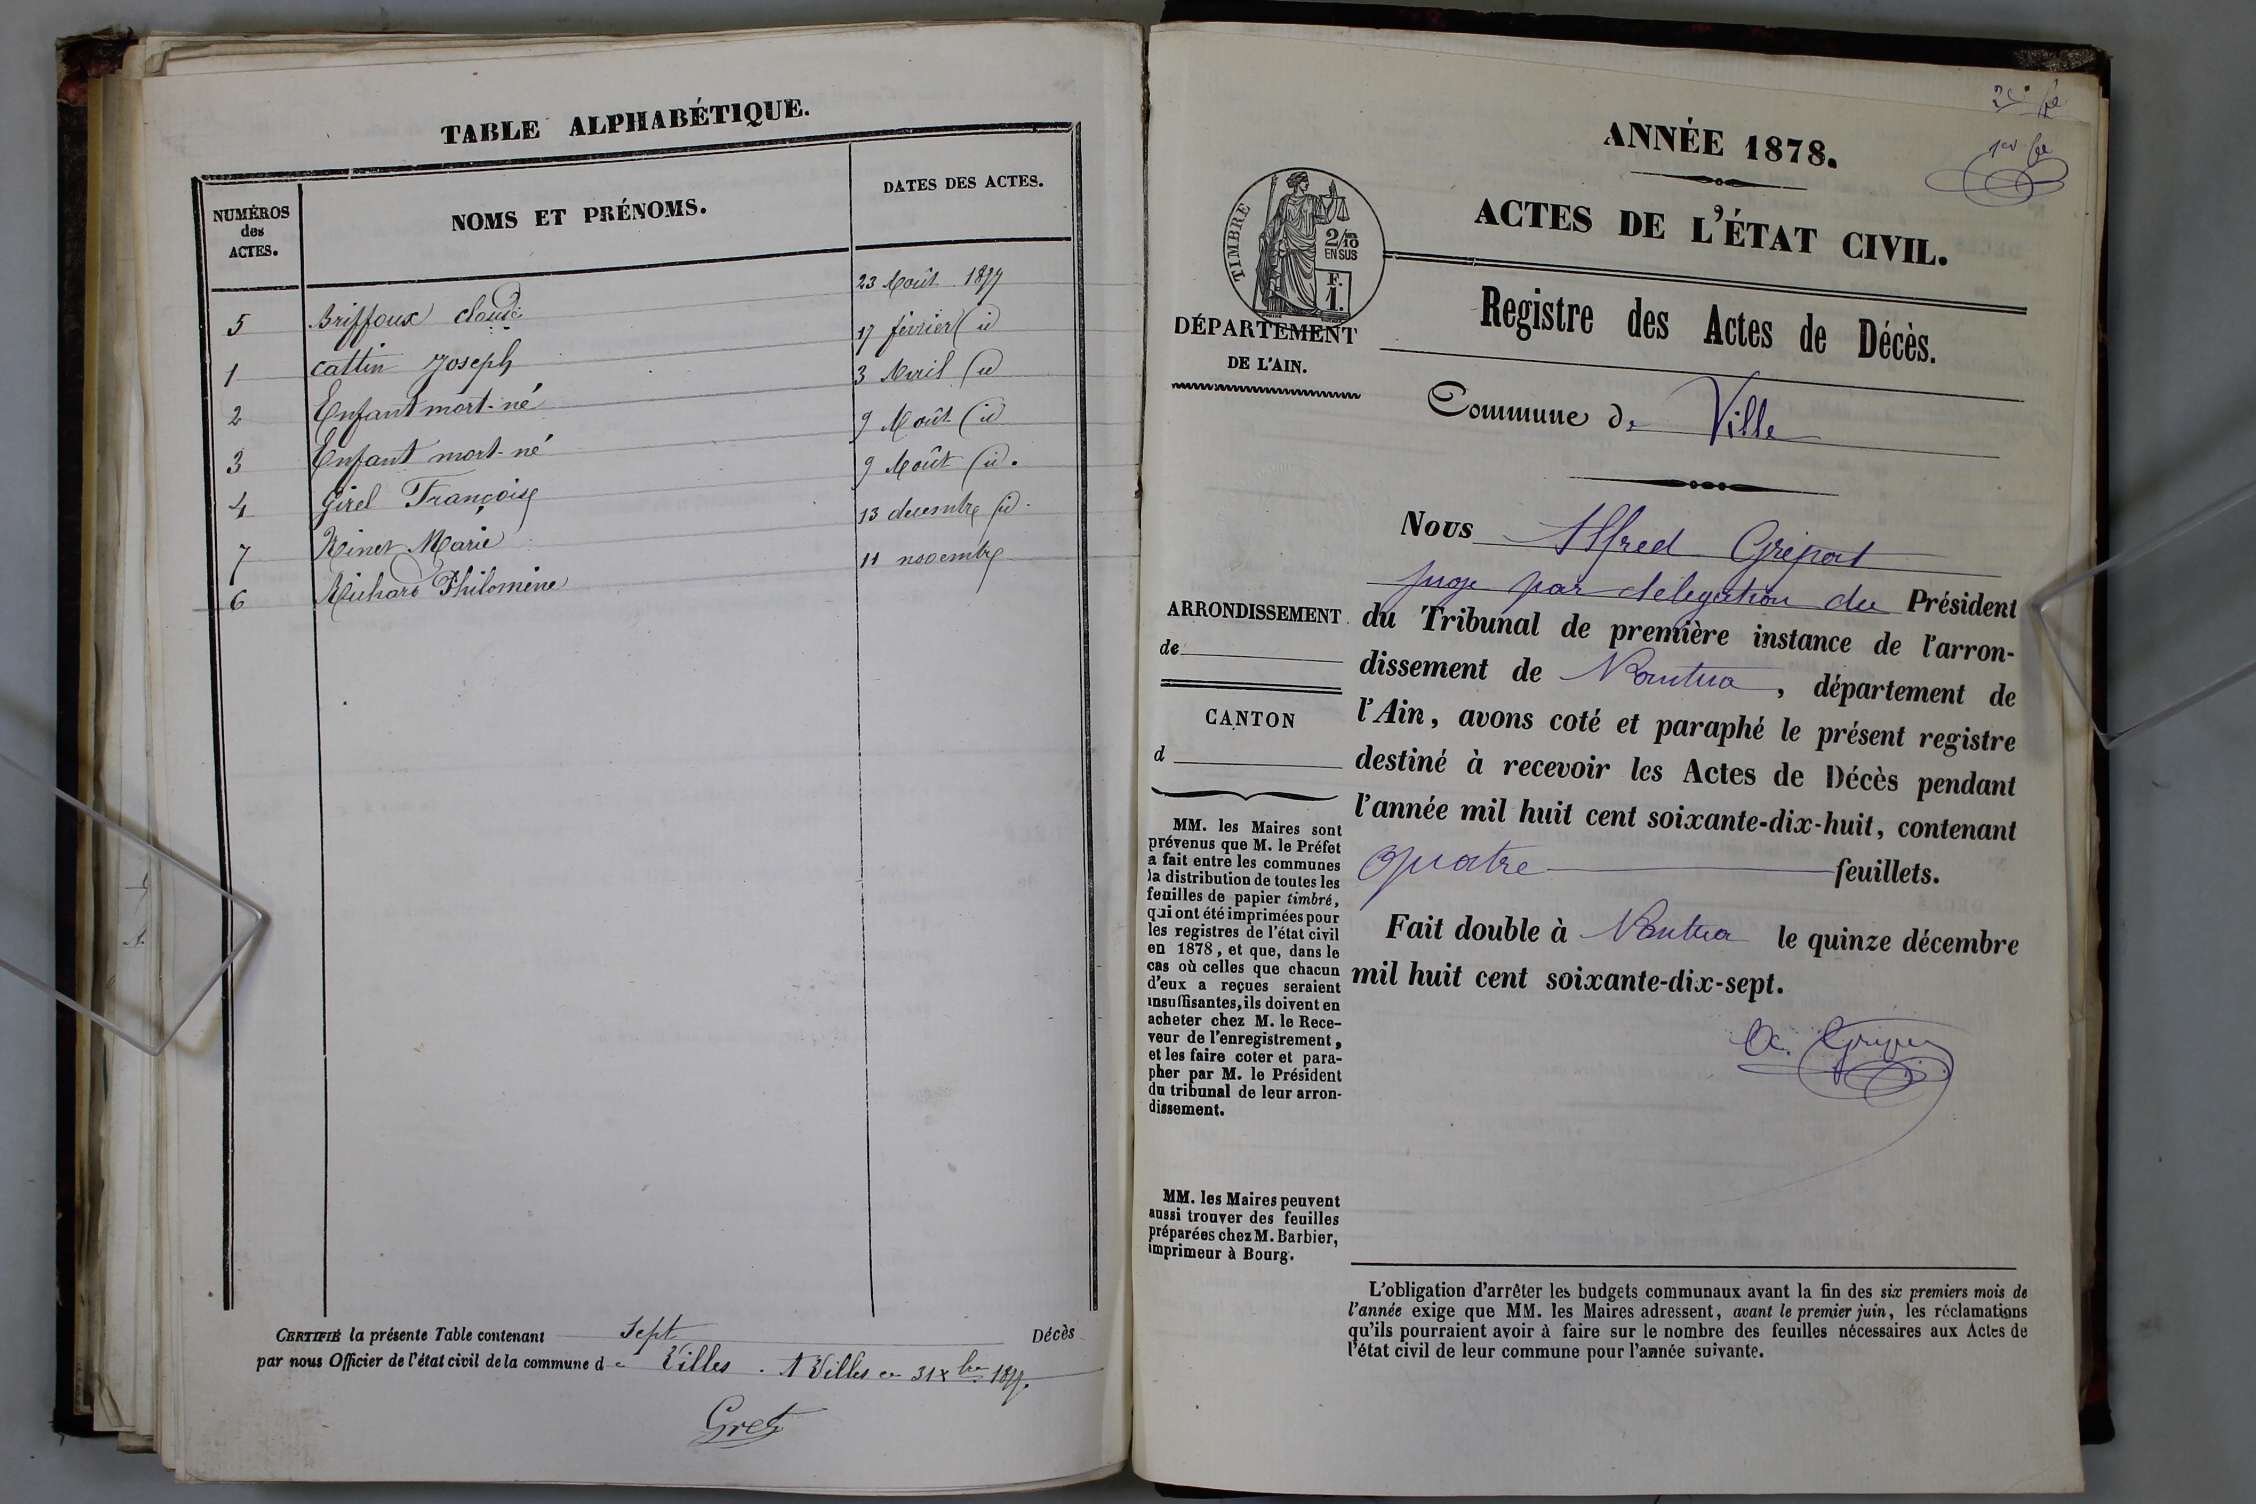 TABLE ALPHABÉTIQUE.
NUMÉROS
des
ACTES.
NOMS ET PRÉNOMS.
DATES DES ACTES.
5 Briffoux Claude 23 Août 1877
1 Cattin Joseph 17 février (id
2 Enfant mort-né 3 Avril (id
3 Enfant mort-né 9 Août (id
4 Girel Françoise 9 Août (id.
7 Kinet Marie 13 decembre (id.
6 Richard Philomène 11 novembre
CERTIFIÉ la présente Table contenant Sept Décès
par nous Officier de l'état civil de la commune de Villes. A Villes ce 31 xbre 1877.
Gret
2e fe
1er fe
ANNÉE 1878.
ACTES DE L'ÉTAT CIVIL.
TIMBRE
2/10
EN SUS
F.
1.
DÉPARTEMENT
DE L'AIN.
Registre des Actes de Décès.
Commune de Ville
Nous Alfred
juge par délégation du Président
du Tribunal de première instance de l'arron-
dissement de Nantua, département de
l'Ain, avons coté et paraphé le présent registre
destiné à recevoir les Actes de Décès pendant
l'année mil huit cent soixante-dix-huit, contenant
quatre feuillets.
Fait double à Nantua le quinze décembre
mil huit cent soixante-dix-sept.
ARRONDISSEMENT
de
CANTON
d
MM. les Maires sont
prévenus que M. le Préfet
a fait entre les communes
la distribution de toutes les
feuilles de papier timbré,
qui ont été imprimées pour
les registres de l'état civil
en 1878, et que, dans le
cas où celles que chacun
d'eux a reçues seraient
insuffisantes, ils doivent en
acheter chez M. le Rece-
veur de l'enregistrement,
et les faire coter et para-
pher par M. le Président
du tribunal de leur arron-
dissement.
MM. les Maires peuvent
aussi trouver des feuilles
préparées chez M. Barbier,
imprimeur à Bourg.
L'obligation d'arrêter les budgets communaux avant la fin des six premiers mois de
l'année exige que MM. les Maires adressent, avant le premier juin, les réclamations
qu'ils pourraient avoir à faire sur le nombre des feuilles nécessaires aux Actes de
l'état civil de leur commune pour l'année suivante.